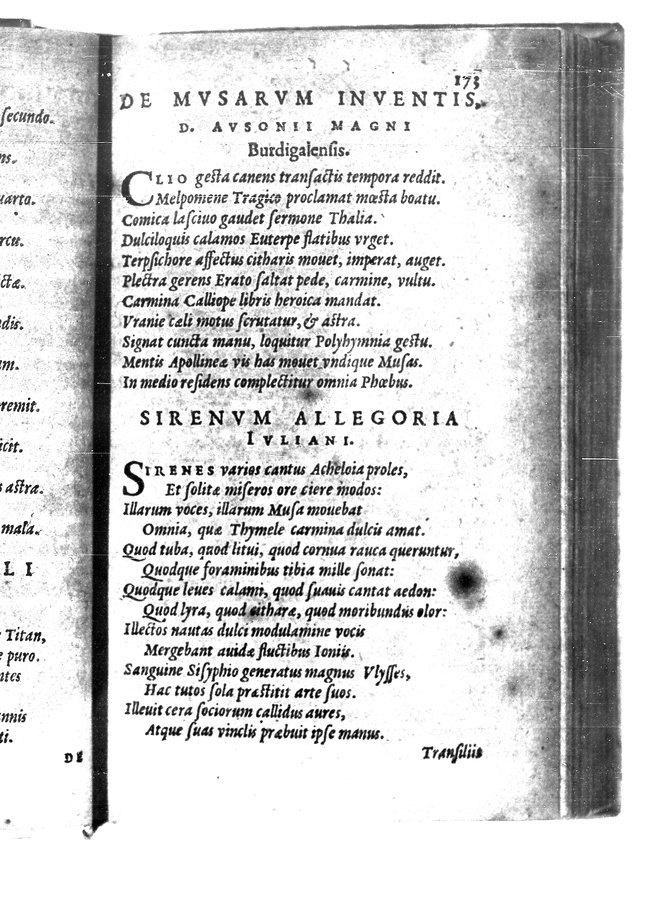 secundo.
ns.
uarto.
rcus.
ctæ.
ndis.
um.
remit.
icit.
s astra.
mala.
L I
Titan,
e puro.
ntes
nnis
ti.
DE
173
DE MVSARVM INVENTIS,
D. AVSONII MAGNI
Burdigalensis.
CLIO gesta canens transactis tempora reddit.
Melpomene Tragico proclamat mœsta boatu.
Comica lasciuo gaudet sermone Thalia.
Dulciloquis calamos Euterpe flatibus vrget.
Terpsichore affectus citharis mouet, imperat, auget.
Plectra gerens Erato saltat pede, carmine, vultu.
Carmina Calliope libris heroica mandat.
Vranie cæli motus scrutatur, & astra.
Signat cuncta manu, loquitur Polyhymnia gestu.
Mentis Apollineæ vis has mouet vndique Musas.
In medio residens complectitur omnia Phœbus.
SIRENVM ALLEGORIA
IVLIANI.
SIRENES varios cantus Acheloia proles,
Et solitæ miseros ore ciere modos:
Illarum voces, illarum Musa mouebat
Omnia, quæ Thymele carmina dulcis amat.
Quod tuba, quod litui, quod cornua rauca queruntur,
Quodque foraminibus tibia mille sonat:
Quodque leues calami, quod suauis cantat aedon:
Quod lyra, quod citharæ, quod moribundus olor:
Illectos nautas dulci modulamine vocis
Mergebant auidæ fluctibus Ioniis.
Sanguine Sisyphio generatus magnus Vlysses,
Hac tutos sola præstitit arte suos.
Illeuit cera sociorum callidus aures,
Atque suas vinclis præbuit ipse manus.
Transiliit